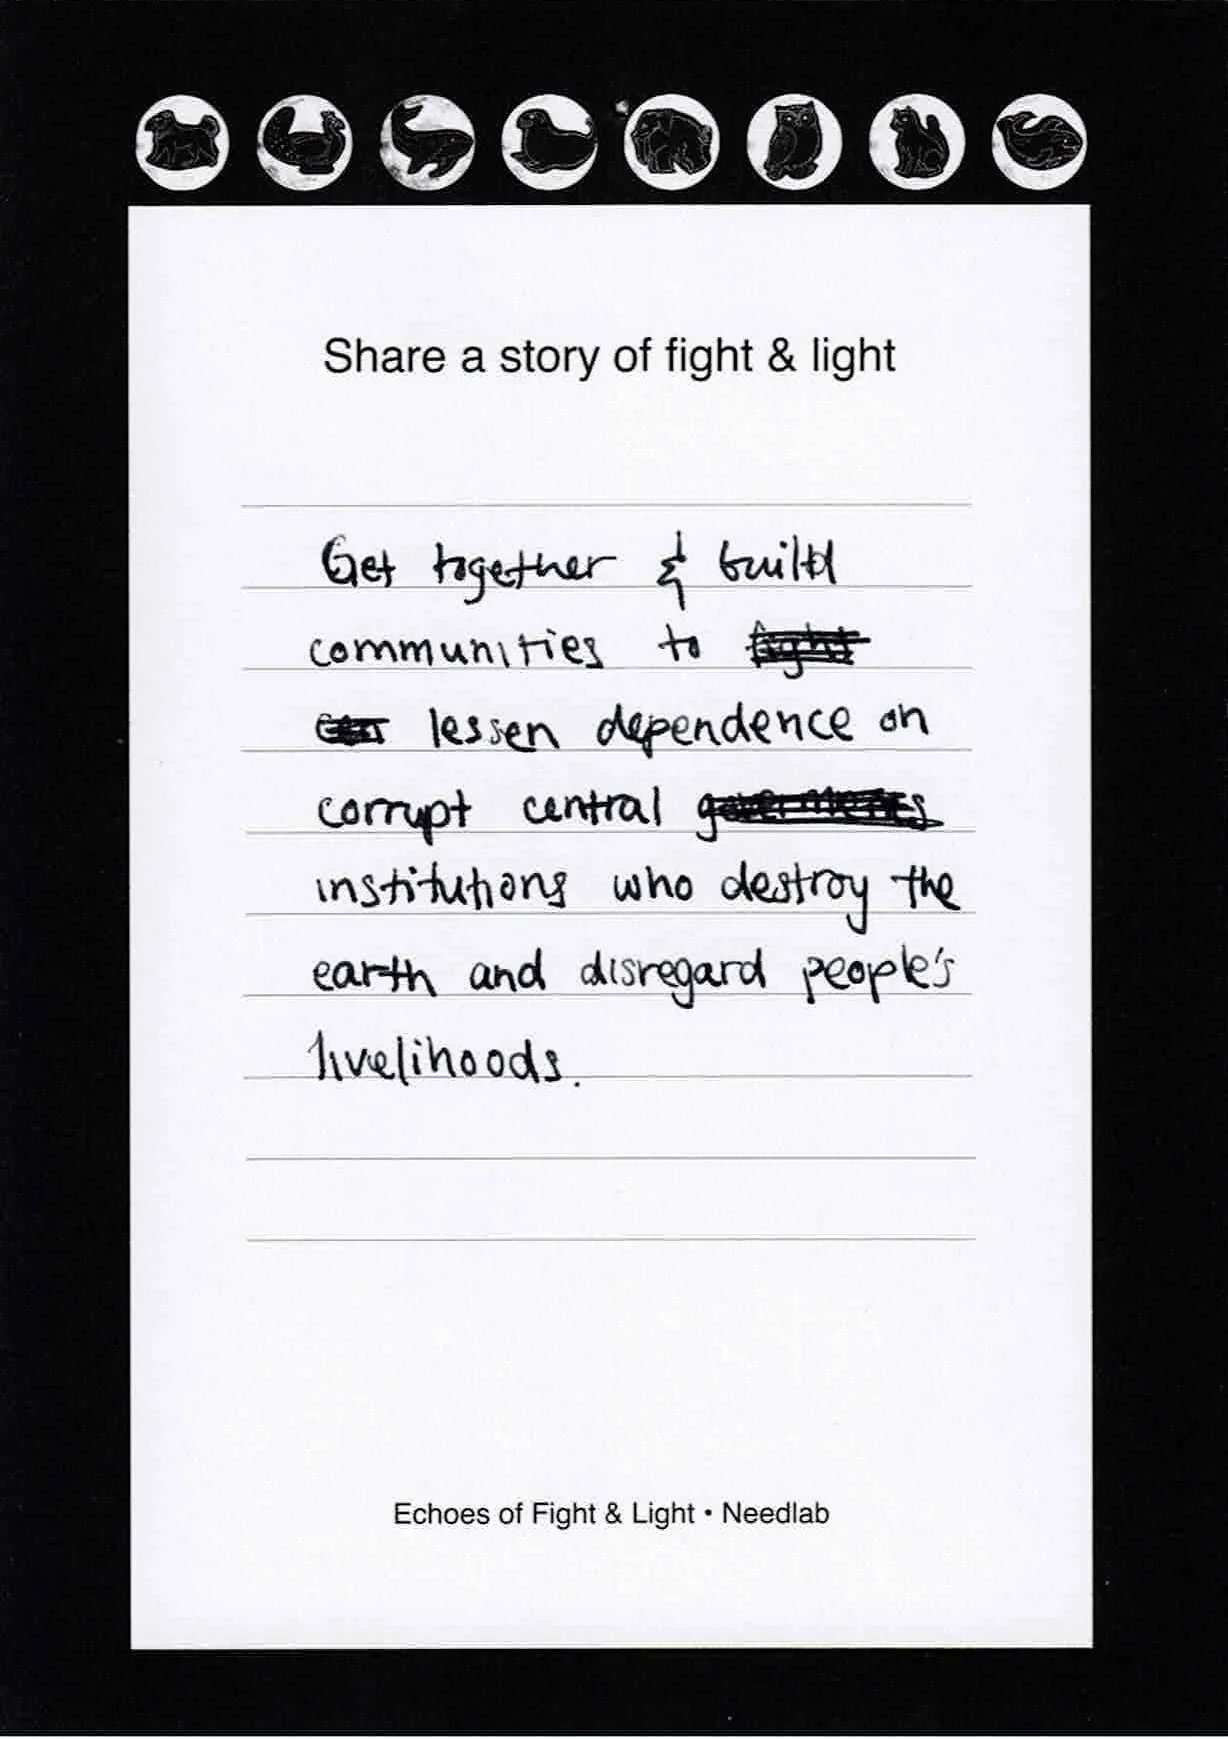 Share a story of fight & light
Get together & build
communities to fight
lessen dependence on
corrupt central governments
institutions who destroy the
earth and disregard people's
livelihoods.
Echoes of Fight & Light • Needlab